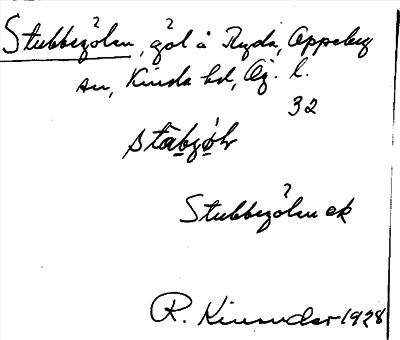 Stubbegölen, göl å Ryda, Oppeby
sn, Kinda hd, Ög. l.
32
Stubbegölen ek
R. Kinander 1928